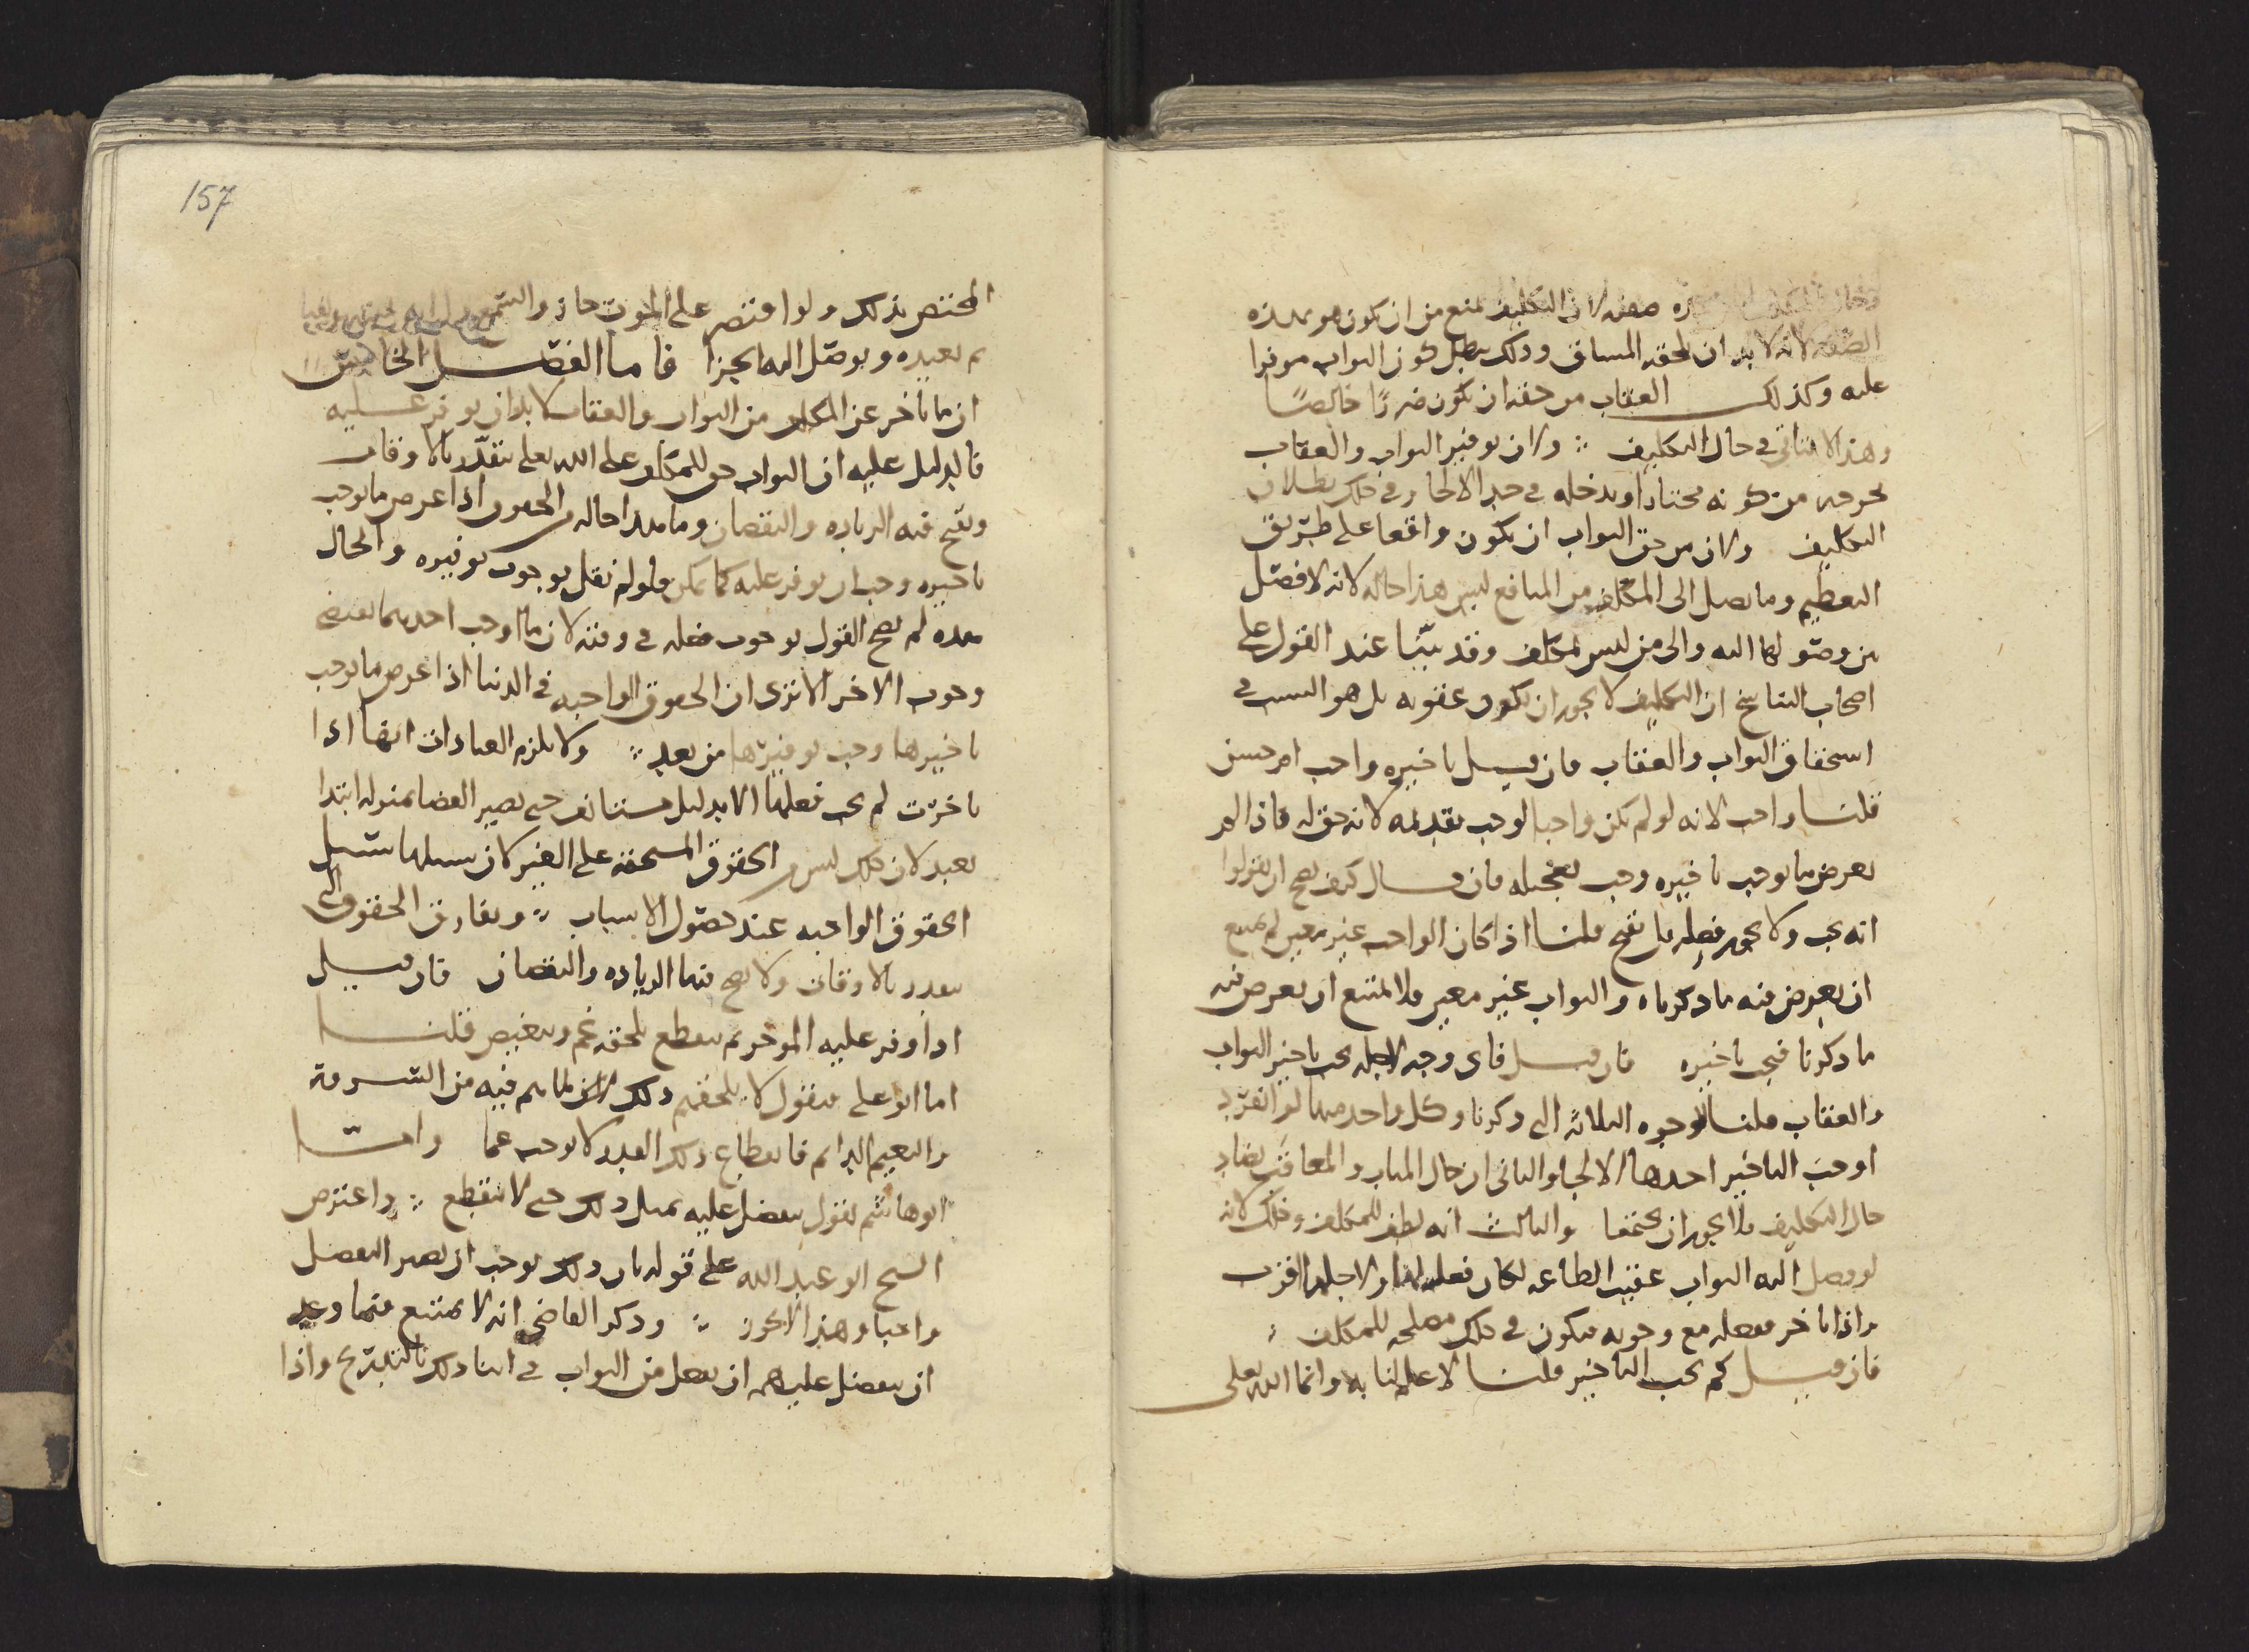 صفته لان التكليف يمنع من ان يكون هو بهذه
الصفة لانه لا بد ان تلحقه المشاق وذلك يبطل كون الثواب موفرا
عليه وكذلك العقاب من حقه ان يكون ضررًا خالصًا
وهذا لا يتاتى في حال التكليف ولان توفير الثواب والعقاب
يخرجه من كونه مختارا ويدخله في حد الالجا وفي ذلك بطلان
التكليف ولان من حق الثواب ان يكون واقعا على طريق
التعظيم وما يصل الى المكلف من المنافع ليس هذا حاله لانه لا فصل
بين وصولها اليه والى من ليس بمكلف وقد بيّنا عند القول على
اصحاب التناسخ ان التكليف لا يجوز ان يكون عقوبه بل هو السبب في
استحقاق الثواب والعقاب فان قيل تاخيره واجب ام حسن
قلنا واجب لانه لو لم يكن واجبا لوجب تقديمه لانه حق له فاذا لم
يعرض ما يوجب تاخيره وجب تعجيله فان قال كيف يصح ان تقولوا
انه يجب ولا يجوز فعله بل يقبح قلنا اذا كان الواجب غير معين لم يمتنع
ان يعرض فيه ما ذكرناه والثواب غير معين فلا يمتنع ان يعرض فيه
ما ذكرنا فيجب تاخيره فان قيل فاي وجه لاجله يجب تاخير الثواب
والعقاب قلنا لوجوه الثلاثه التي ذكرنا وكل واحد منها لو انفرد
اوجب التاخير احدها الالجا والثاني ان حال المثاب والمعاقب يضاد
حال التكليف فلا يجوز ان يجتمعا والثالث انه لطف للمكلف وذلك لانه
لو وصل اليه الثواب عقيب الطاعه لكان فعله لها لاجله اقرب
واذا تاخر فعله مع وجوبه فيكون في ذلك مصلحه للمكلف
فان قيل كم يجب التاخير قلنا لا علم لنا به وانما الله تعلى
157
المختص بذلك ولو اقتصر على الموت جاز
ثم يعيده ويوصل اليه الجزا فاما الفصل الخامس
ان ما تاخر عن المكلف من الثواب والعقاب لا بد ان يوفر عليه
فالدليل عليه ان الثواب حق للمكلف على الله تعلى يتقدّر بالاوقات
ويقع فيه الزياده والنقصان وما هذا حاله من الحقوق اذا عرض ما يوجب
تاخيره وجب ان يوفر عليه كما يمكن ولو لم نقل بوجوب توفيره والحال
هذه لم يصح القول بوجوب فعله في وقته لان ما اوجب احدهما يقتضي
وجوب الاخر الا ترى ان الحقوق الواجبه في الدنيا اذا عرض ما يوجب
تاخيرها وجب توفيرها من بعد ولا يلزم العبادات انها اذا
تاخرت لم يجب فعلها الا بدليل مستانف حتى يصير القضا بمنزله ابتدا
تعبد لان ذلك ليس من الحقوق المستحقه على الغير كان سبيلها سبيل
الحقوق الواجبه عند حصول الاسباب ويفارق الحقوق التي
تتقدر بالاوقات ولا يصح فيها الزياده والنقصان فان قيل
اذا وفر عليه الموخر ثم ينقطع يلحقه غم وتنغيص قلنا
اما ابو علي فيقول لا يلحقهم ذلك لما هم فيه من السرور
والنعيم الدايم فانقطاع ذلك القدر لا يوجب غما واما
ابو هاشم يقول يتفضل عليه بمثل ذلك حتى لا ينقطع واعترض
الشيخ ابو عبد الله على قوله بان ذلك يوجب ان يصير التفضل
واجبا وهذا لا يجوز وذكر القاضي انه لا يمتنع فيما وعد
ان يتفضل عليهم ان يفعل من الثواب في اثنا ذلك بالتدريج واذا